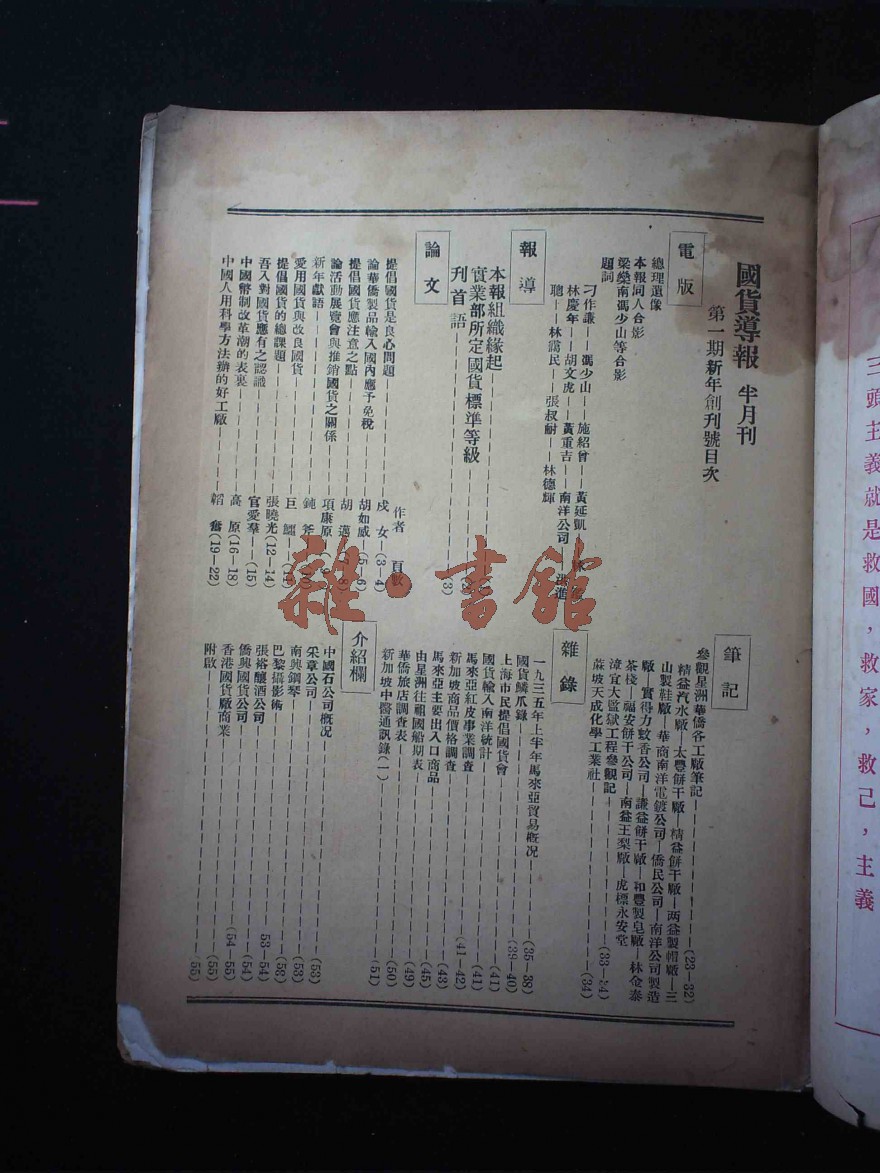 國貨導報 半月刊
第一期新年創刊號目次
電版
總理遺像
本報同人合影
梁燮南馮少山等合影
題詞
刁作謙——馮少山——施紹曾——黃延凱
林慶年——胡文虎——黃重吉——南洋公司
聰——林靄民——張叔耐——林德輝
報導
本報組織緣起
實業部所定國貨標準等級
刊首語
論文
作者 頁數
提倡國貨是良心問題 戍女 (3—4)
論華僑製品輸入國內應予免稅 胡如威 (5—6)
提倡國貨應注意之點 胡邁 (7—8)
論活動展覽會與推銷國貨之關係 項康原
新年獻語
愛用國貨與改良國貨 巨鱷
提倡國貨的總課題 張曉光 (12—14)
吾人對國貨應有之認識 官愛羣 (15)
中國幣制改革潮的表裏 高原 (16—18)
中國人用科學方法辦的好工廠 韜奮 (19—22)
筆記
參觀星洲華僑各工廠筆記 (23—32)
精益汽水廠—太豐餅干廠—精益餅干廠—两益製帽廠—三
山製鞋廠—華商南洋電鍍公司—僑民公司—南洋公司製造
廠—實得力蚊香公司—謙益餅干廠—和豐製皂廠—林金泰
茶棧—福安餅干公司—南益王梨廠—虎標永安堂
漳宜大監獄工程參觀記 (33—34)
蔴坡天成化學工業社 (34)
雜錄
一九三五年上半年馬來亞貿易概况 (35—38)
國貨鱗爪錄 (39—40)
上海市民提倡國貨會 (41)
國貨輸入南洋統計 (41)
馬來亞紅皮事業調查 (41—42)
新加坡商品價格調查 (43)
馬來亞主要出入口商品 (45)
由星洲往祖國船期表 (49)
華僑旅店調查表 (50)
新加坡中醫通訊錄(一) (51)
介紹欄
中國石公司概况 (53)
采章公司 (53)
南興鋼琴 (53)
巴黎攝影術 (53)
張裕釀酒公司 53—54)
僑興國貨公司 (54)
香港國貨廠商業 (54—55)
附啟 (55)
(55)
義就是救國，救家，救己，主義
雜·書館